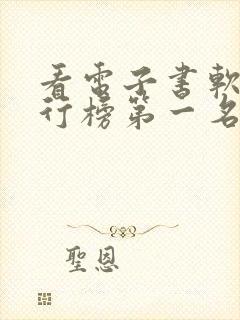 看電子書軟
行榜第一名
聖恩